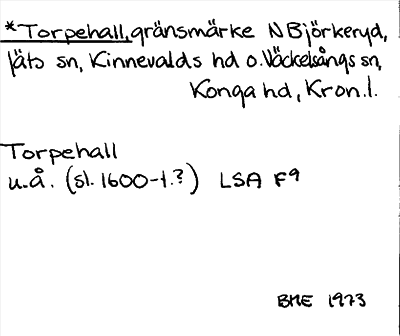 *Torpehall, gränsmärke N Björkeryd,
Jäts sn, Kinnevalds hd o. Väckelsångs sn,
Konga hd, Kron.l.
Torpehall
u.å. (sl. 1600-t.?) LSA F9
BME 1973